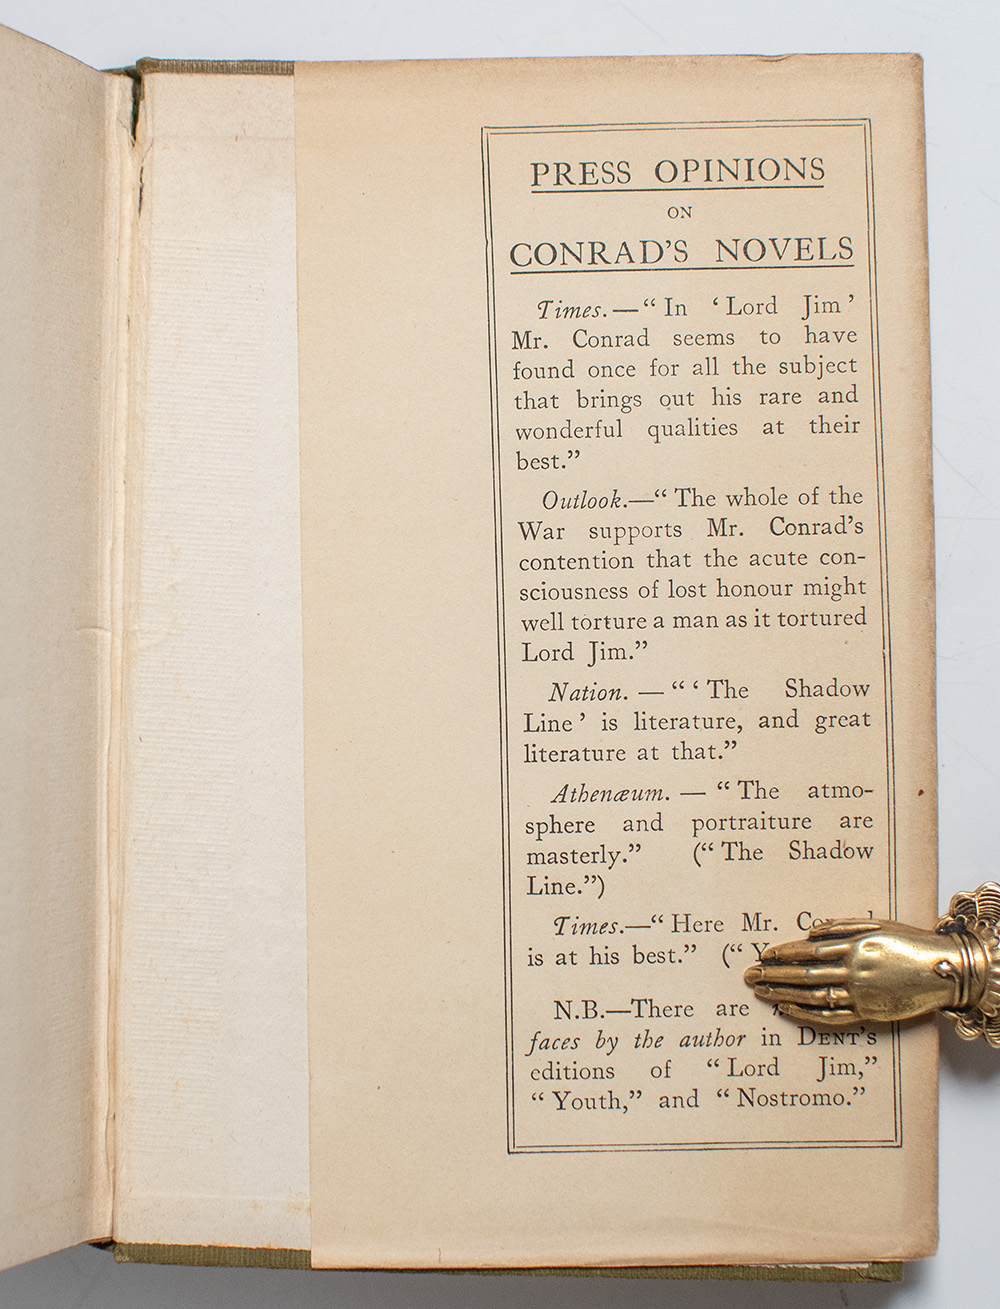 PRESS OPINIONS
ON
CONRAD'S NOVELS
Times.—“In ‘Lord Jim’
Mr. Conrad seems to have
found once for all the subject
that brings out his rare and
wonderful qualities at their
best.”
Outlook.—“The whole of the
War supports Mr. Conrad's
contention that the acute con-
sciousness of lost honour might
well torture a man as it tortured
Lord Jim.”
Nation. — “‘The Shadow
Line’ is literature, and great
literature at that.”
Athenæum. — “The atmo-
sphere and portraiture are
masterly.” (“The Shadow
Line.”)
Times.—“Here Mr.
is at his best.” (“
N.B.—There are
faces by the author in DENT'S
editions of “Lord Jim,”
“Youth,” and “Nostromo.”